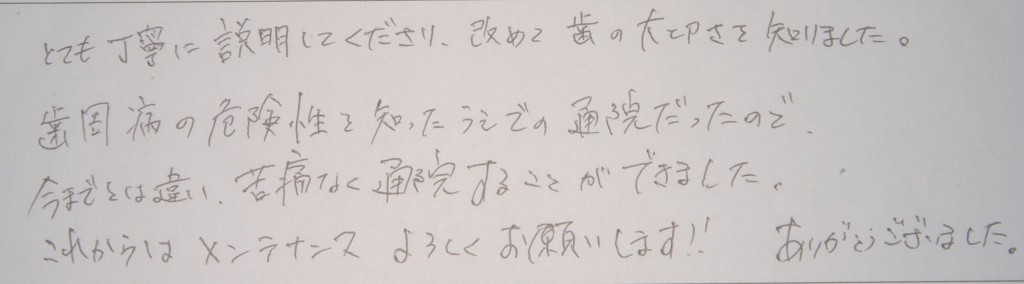 とても丁寧に説明してくださり、改めて歯の大切さを知りました。
歯周病の危険性を知ったうえでの通院だったので、
今までとは違い、苦痛なく通院することができました。
これからはメンテナンスよろしくお願いします!! ありがとうございました。